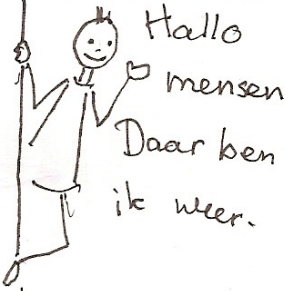 Hallo
mensen
Daar ben
ik weer.